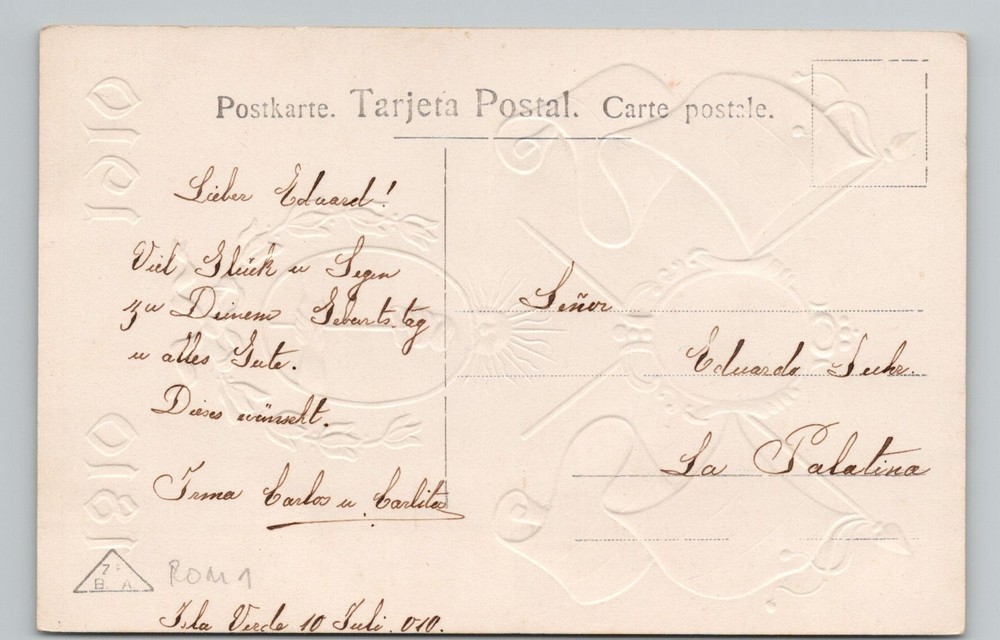 Postkarte. Tarjeta Postal. Carte postale.
Lieber Eduard!
Viel Glück u Segen
zu Deinem Geburts-tag
u alles Gute.
Dieses wünscht.
Irma Carlos u Carlitos
Isla Verde 10 Juli. 010.
Señor
Eduardo Suhr.
La Palatina
1910
1810
B. A
ROMA